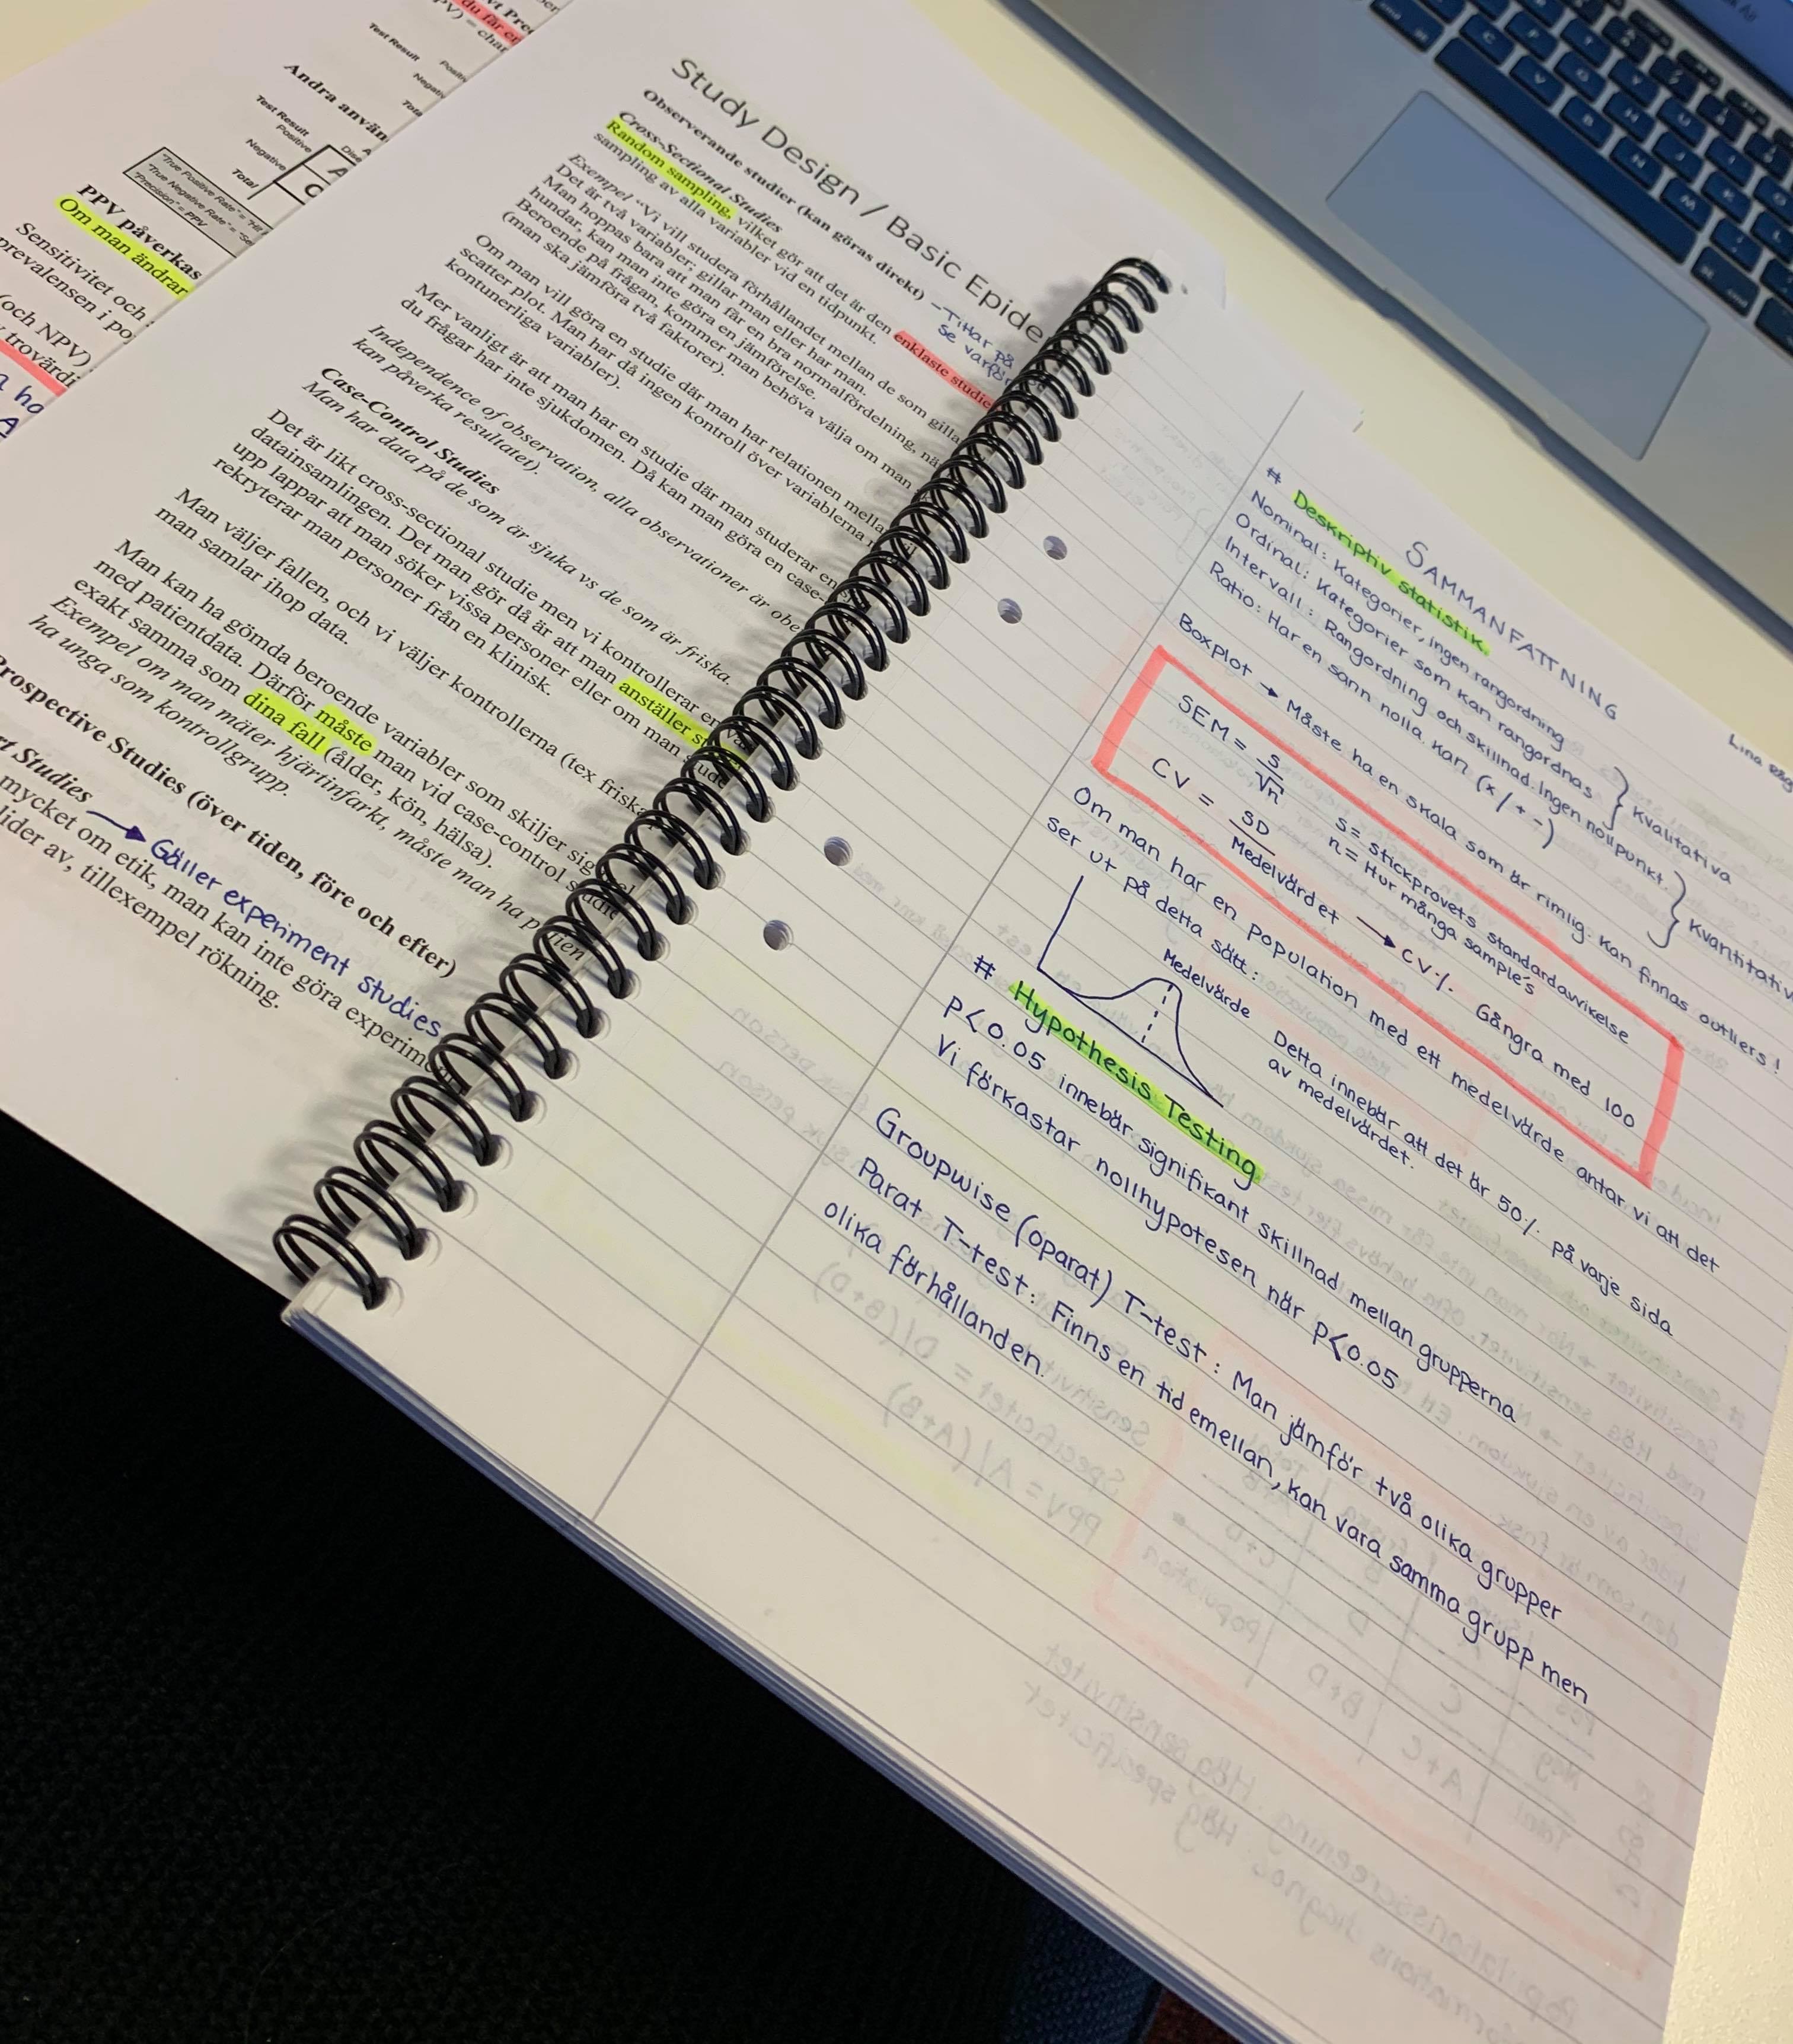 Test Result
Andra använ
Test Result
Positive
Negative
Total
A
C
"True Positive Rate" = "Hit
"True Negative Rate" = "Se
"Precision" = PPV
PPV påverkas
Om man ändrar
Sensitivitet och
prevalensen i po
(och NPV)
Study Design / Basic Epide
Observerande studier (kan göras direkt) – Tittar på
se varför
Cross-Sectional Studies
Random sampling, vilket gör att det är den enklaste studie
sampling av alla variabler vid en tidpunkt.
Exempel "Vi vill studera förhållandet mellan de som gilla
Det är två variabler; gillar man eller har man.
Man hoppas bara att man får en bra normalfördelning, nä
hundar, kan man inte göra en jämförelse.
Beroende på frågan, kommer man behöva välja om man
(man ska jämföra två faktorer).
Om man vill göra en studie där man har relationen mella
scatter plot. Man har då ingen kontroll över variablerna
kontunerliga variabler).
Mer vanligt är att man har en studie där man studerar en
du frågar hardı inte sjukdomen. Då kan man göra en case-
Independence of observation, alla observationer är obe
kan påverka resultatet).
Case-Control Studies
Man har data på de som är sjuka vs de som är friska.
Det är likt cross-sectional studie men vi kontrollerar en
datainsamlingen. Det man gör då är att man anställer s
upp lappar att man söker vissa personer eller om man
rekryterar man personer från en klinisk.
Man väljer fallen, och vi väljer kontrollerna (tex friska
man samlar ihop data.
Man kan ha gömda beroende variabler som skiljer sig
med patientdata. Därför måste man vid case-control
exakt samma som dina fall (ålder, kön, hälsa).
Exempel om man mäter hjärtinfarkt, måste man ha
ha unga som kontrollgrupp.
Prospective Studies (över tiden, före och efter)
Studies → Gäller experiment studies
mycket om etik, man kan inte göra experim
lider av, tillexempel rökning.
Lina
SAMMANFATTNING
# Deskriptiv statistik.
Nominal: Kategorier, ingen rangordning
Ordinal: Kategorier som kan rangordnas } Kvalitativa
Intervall: Rangordning och skillnad. Ingen nollpunkt.
Ratio: Har en sann nolla. Kan (x / + -) } Kvantitativ
Boxplot → Måste ha en skala som är rimlig. Kan finnas outliers!
SEM = s/√n s = stickprovets standardavvikelse
n = Hur många sample's
CV = SD/Medelvärdet → CV% Gångra med 100
Om man har en population med ett medelvärde antar vi att det
ser ut på detta sätt:
Medelvärde
Detta innebär att det är 50% på varje sida
av medelvärdet.
# Hypothesis Testing
P<0.05 innebär signifikant skillnad mellan grupperna
Vi förkastar nollhypotesen när P<0.05
Groupwise (oparat) T-test: Man jämför två olika grupper
Parat T-test: Finns en tid emellan, kan vara samma grupp men
olika förhållanden.